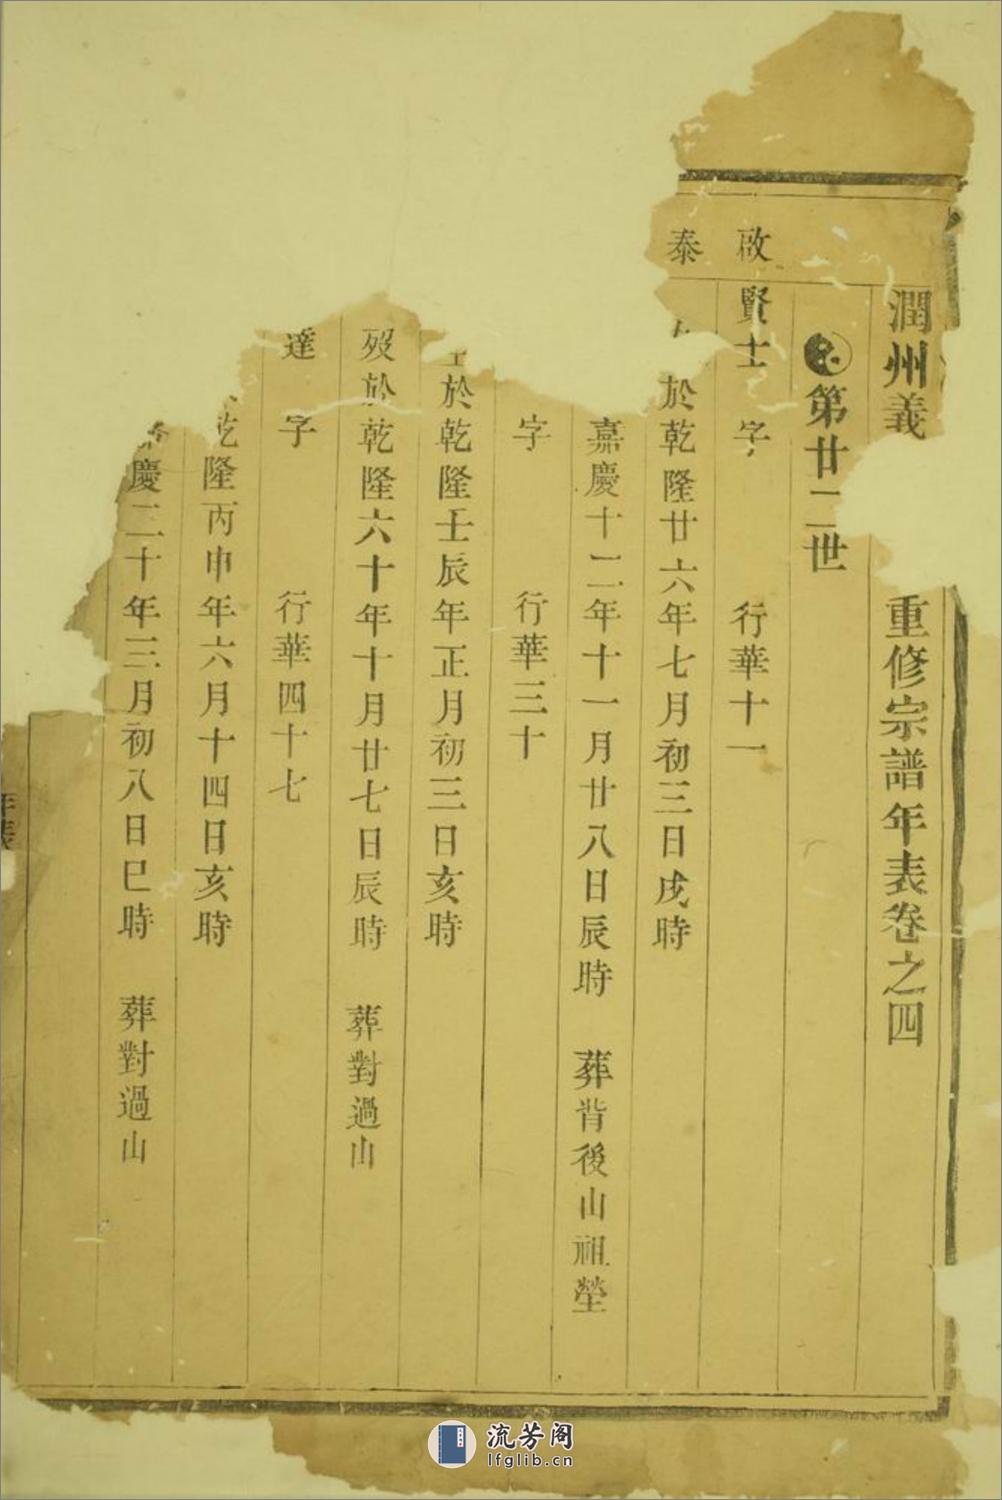 潤州義 重修宗譜年表卷之四
第廿二世
啟賢士 字 行華十一
泰 於乾隆廿六年七月初三日戌時
嘉慶十二年十一月廿八日辰時 葬背後山祖塋
字 行華三十
於乾隆壬辰年正月初三日亥時
歿於乾隆六十年十月廿七日辰時 葬對過山
達 字 行華四十七
乾隆丙申年六月十四日亥時
慶二十年三月初八日巳時 葬對過山
年表
流芳阁
lfglib.cn